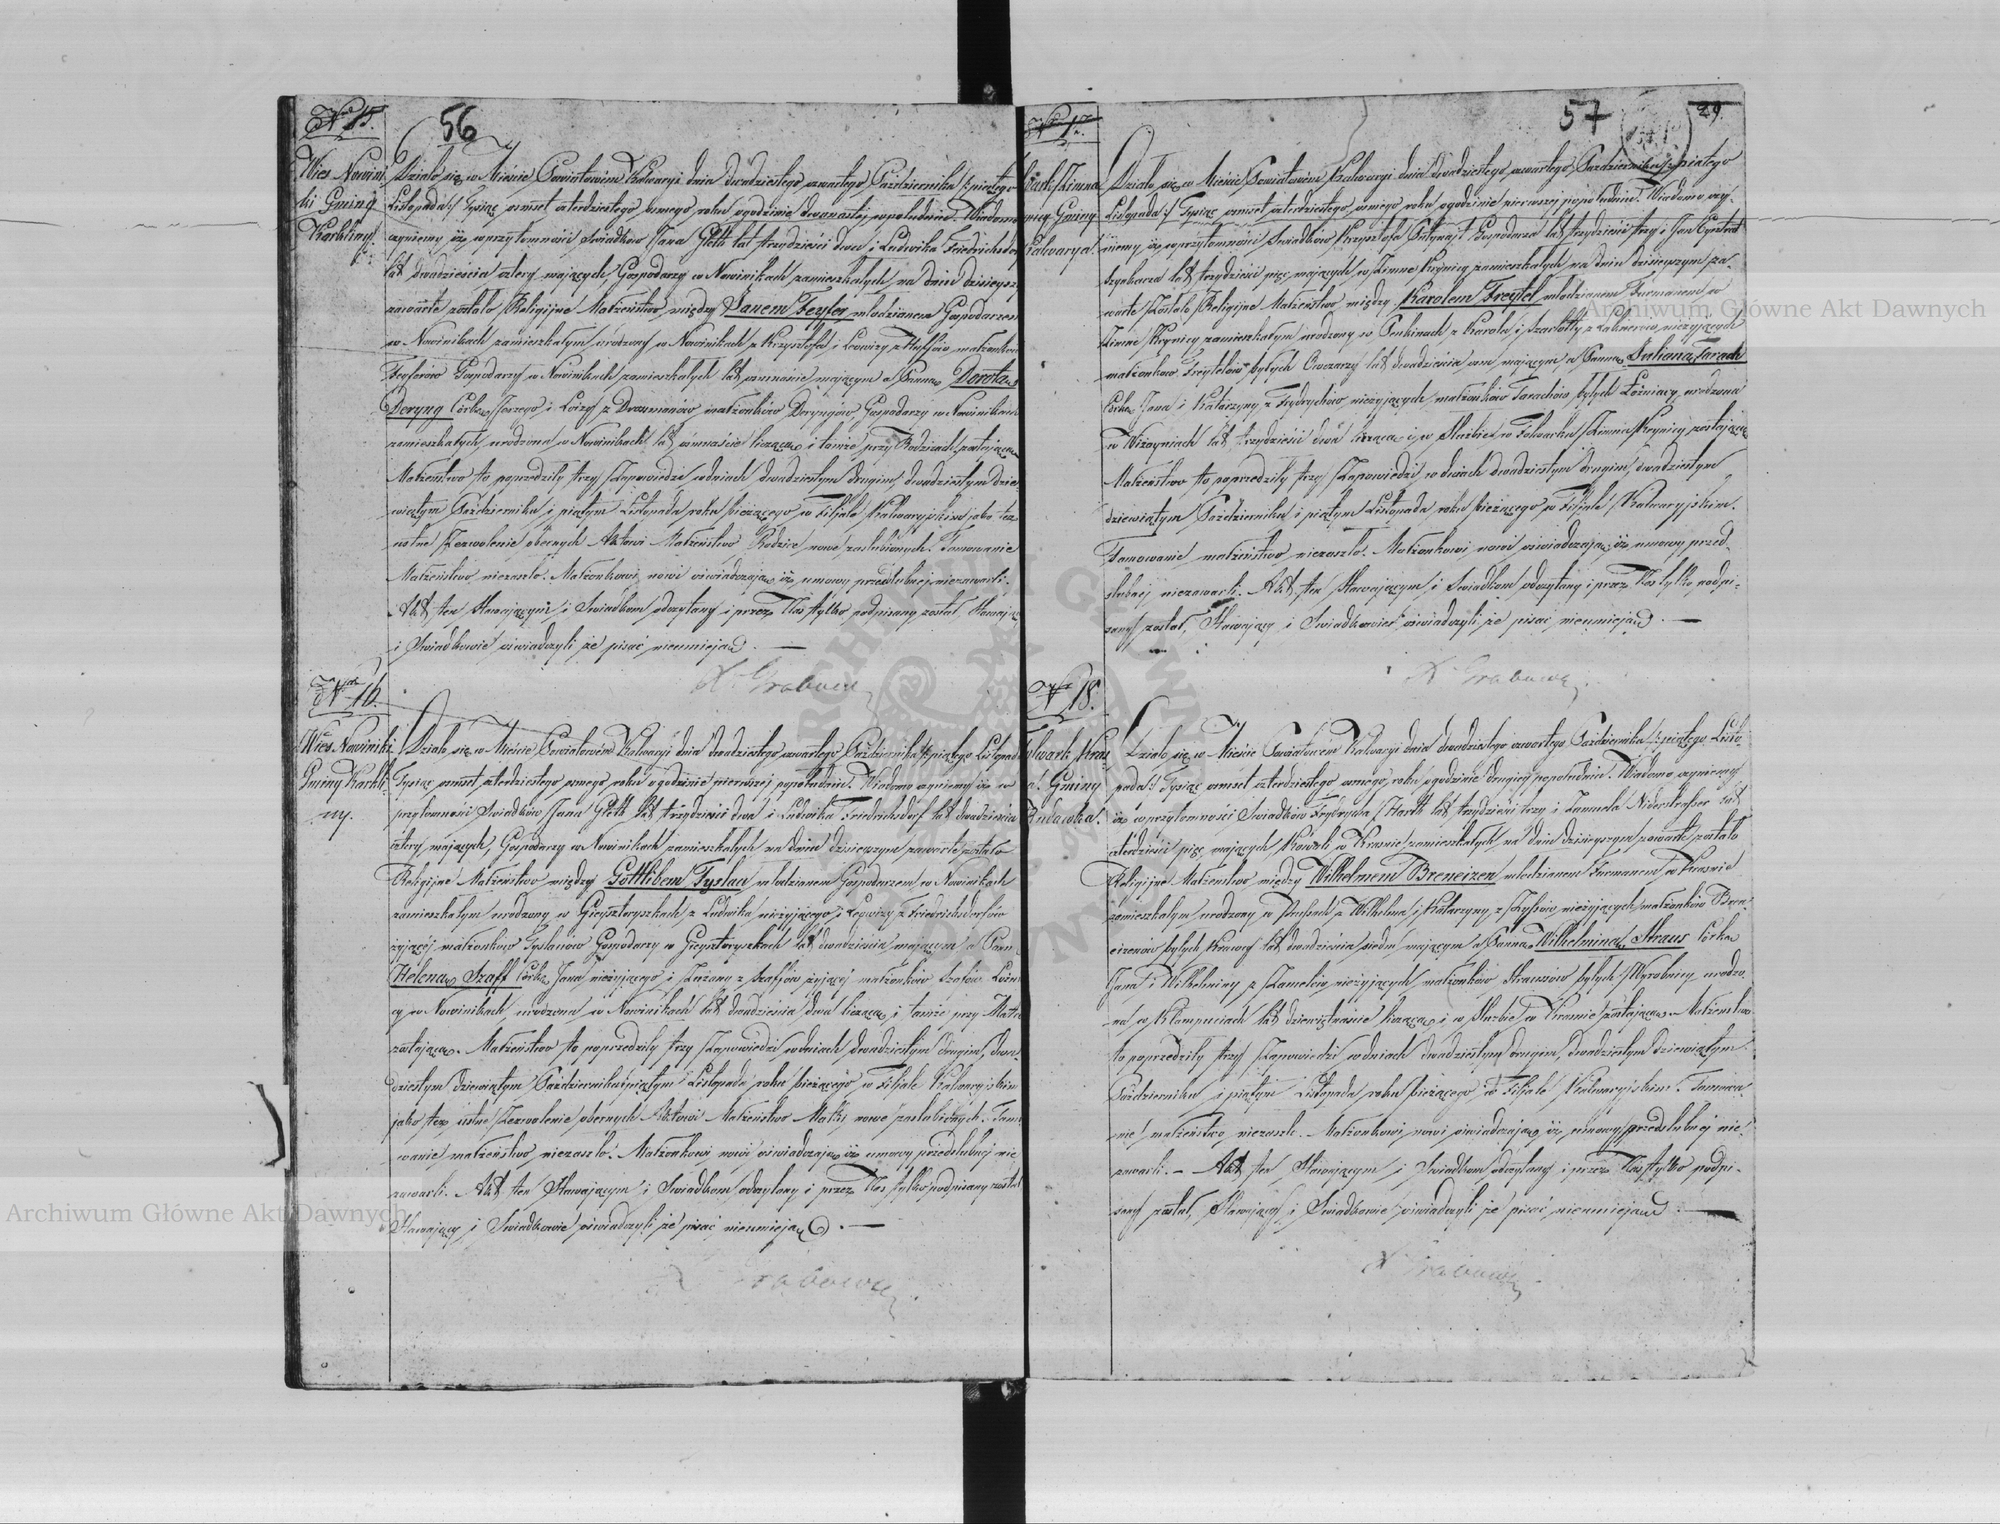 56
No 15.
Wieś Nowini
ki Gminy
Karkliny
Działo się w Mieście Powiatowém Kalwaryi dnia dwudziestego czwartego Października /:piątego
Listopada:/ Tysiąc ośmset czterdziestego ósmego roku o godzinie dwunastéj popołudniu. Wiadomo
czyniemy iż w przytomności świadków Jana Glett lat trzydzieści dwa i Ludwika Friedrichsdorf
lat dwadzieścia cztery mających Gospodarzy w Nowinikach zamieszkałych, na dniu dzisiejsz
zawarte zostało Religijne Małżeństwo między Janem Feyfer młodzianem Gospodarzem
w Nowinikach zamieszkałym urodzony w Nowinikach z Krzysztofa i Lowizy z małżonków
Feyferów Gospodarzy w Nowinikach zamieszkałych lat mającym a Panną Dorotą
Deryng córką Jerzego i Loizy z małżonków Deryngów Gospodarzy w Nowinikach
zamieszkałych, urodzona w Nowinikach lat ośmnaście licząca i tamże przy Rodzicach zostająca
Małżeństwo to poprzedziły trzy Zapowiedzi w dniach dwudziestym drugim, dwudziestym dzie
wiątym Października i piątym Listopada roku bieżącego w Filiale Kalwaryjskim jako też
ustne zezwolenie obecnych Aktowi Małżeństwo Rodzice nowo zaslubionych. Tamowanie
Małżeństwo niezaszło. Małżonkowi nowi oświadczają iż umowy przedslubnej niezawarli.
Akt ten Stawającym i Swiadkom odczytany i przez Nas tylko podpisany został. Stawający
i Swiadkowie oświadczyli że pisać nieumieją.
X Grabow
No 16.
Wieś Nowiniki
Gminy Karkli
ny.
Działo się w Mieście Powiatowém Kalwaryi dnia dwudziestego czwartego Października /:piątego Listopad
Tysiąc ośmset czterdziestego ósmego roku o godzinie pierwszej popołudniu. Wiadomo czyniemy iż w
przytomności Swiadków Jana Glett lat trzydzieści dwa i Ludwika Friedrichsdorf lat dwadzieścia
cztery mających, Gospodarzy w Nowinikach zamieszkałych na dniu dzisiejszym zawarte zostało
Religijne Małżeństwo między Gottlibem Tyslau młodzianem Gospodarzem w Nowinikach
zamieszkałym urodzony w Giejsztoryszkach z Ludwika nieżyjącego i Lowizy z Friedrichsdorfów
żyjącéj małżonków Tyslauów Gospodarzy w Giejsztoryszkach lat dwadzieścia mającym a Pann
Heleną Szaff córką Jana nieżyjącego i Zuzany z Szaffów żyjącéj małżonków Szafów
w Nowinikach, urodzona w Nowinikach lat dwadzieścia dwa licząca i tamże przy Matce
zostająca. Małżeństwo to poprzedziły trzy Zapowiedzi w dniach dwudziestym drugim, dwu
dziestym dziewiątym Październiku i piątym Listopada roku bieżącego w Filiale Kalwaryjskim
jako też ustne zezwolenie obecnych Aktowi Małżeństwo Matki nowo zaslubionych. Tamo
wanie małżeństwo niezaszło. Małżonkowi nowi oświadczają iż umowy przedslubnej nie
zawarli. Akt ten Stawającym i Swiadkom odczytany i przez Nas tylko podpisany został
Stawający i Swiadkowie oświadczyli że pisać nieumieją.
X Grabow
57
29
No 17.
Zimna
Gminy
Kalwarya
Działo się w Mieście Powiatowém Kalwaryi dnia dwudziestego czwartego Października /:piątego
Listopada:/ Tysiąc ośmset czterdziestego ósmego roku o godzinie pierwszej popołudniu. Wiadomo czy-
niemy iż w przytomności Swiadków Krzysztofa Gospodarza lat trzydzieści trzy i Jan
lat trzydzieści pięć mających, w Zimne Krynicy zamieszkałych na dniu dzisiejszym za-
warte zostało Religijne Małżeństwo między Karolem Freytel młodzianem Furmanem w
Zimne Krynicy zamieszkałym urodzony w z Karola i Szarlotty z nieżyjących
małżonków Freytelów byłych Owczarzy lat dwadzieścia mającym a Panną Julianą Tarach
córką Jana i Katarzyny z Frydrychów nieżyjących małżonków Tarachów byłych urodzona
w Wiżayniach lat trzydzieści dwa licząca i w służbie w Folwarku Zimna Krynicy zostająca
Małżeństwo to poprzedziły trzy Zapowiedzi w dniach dwudziestym drugim, dwudziestym
dziewiątym Październiku i piątym Listopada roku bieżącego w Filiale Kalwaryjskim.
Tamowanie małżeństwo niezaszło. Małżonkowi nowi oświadczają iż umowy przed-
slubnéj niezawarli. Akt ten Stawającym i Swiadkom odczytany i przez Nas tylko podpi-
sany został, Stawający i Swiadkowie oświadczyli że pisać nieumieją.
X Grabow
No 18.
Folwark Kras
Gminy
Rudawka.
Działo się w Mieście Powiatowém Kalwaryi dnia dwudziestego czwartego Października /:piątego Listo-
pada:/ Tysiąc ośmset czterdziestego ósmego roku o godzinie drugiej popołudniu. Wiadomo czyniemy
iż w przytomności Swiadków Frydrycha Hartt lat trzydzieści trzy i Zamuela Niderstraser lat
czterdzieści pięć mających, Kowali w Krasnie zamieszkałych, na dniu dzisiejszym zawarte zostało
Religijne Małżeństwo między Wilhelmem Breneizen młodzianem Furmanem w Krasnie
zamieszkałym urodzony w Prusach z Wilhelma i Katarzyny z nieżyjących małżonków Bren-
eizenów byłych lat dwadzieścia siedm mającym a Panną Wilhelminą Straus córką
Jana i Wilhelminy z nieżyjących małżonków Strausów byłych Wyrobnicy urodzo-
na w lat dziewiętnaście licząca i w służbie w Krasnie zostająca. Małżeństwo
to poprzedziły trzy Zapowiedzi w dniach dwudziestym drugim, dwudziestym dziewiątym
Październiku i piątym Listopada roku bieżącego w Filiale Kalwaryjskim. Tamowa-
nie małżeństwo niezaszło. Małżonkowi nowi oświadczają iż umowy przedslubnej nie-
zawarli. - Akt ten Stawającym i Swiadkom odczytany i przez Nas tylko podpi-
sany został, Stawający i Swiadkowie oświadczyli że pisać nieumieją.
X Grabow
Archiwum Główne Akt Dawnych
Archiwum Główne Akt Dawnych